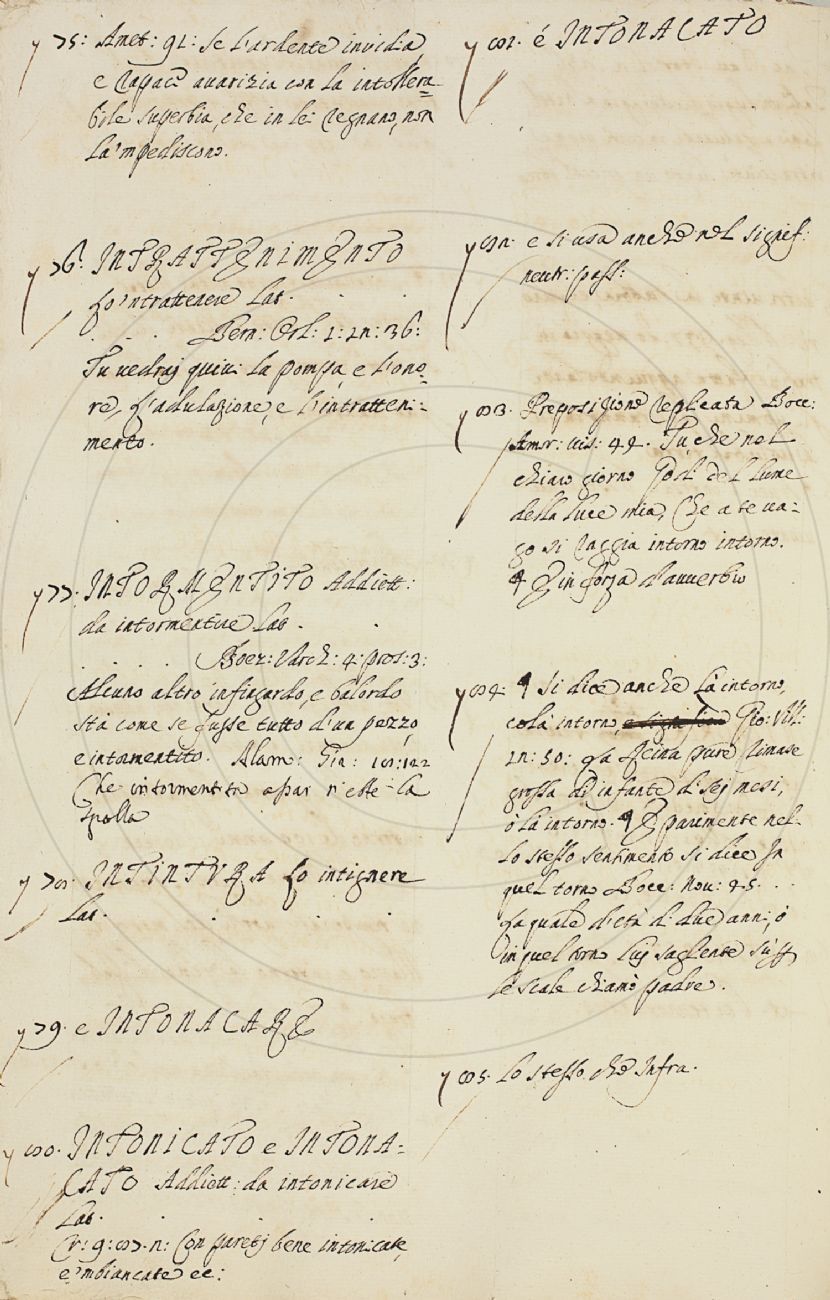 75: Amet: 91: Se l'ardente invidia,
e rapace avarizia con la intollera=
bile superbia, che in lei regnano, non
la'mpediscono.
76. INTRATTENIMENTO
Lo'ntrattenere Lat. . .
. . . Bern: Orl: 1: 2n: 36:
Tu vedraj quivi la pompa, e l'ono=
re, l'adulazione, e l'intratteni=
mento.
77. INTORMENTITO Addiett:
da intormentire Lat. .
. . . . Boez: Varch: 4: pros: 3:
Alcuno altro infingardo, e balordo
sta come se fusse tutto d'un pezzo,
e intormentito. Alam: Gir:
Che intormentita apar n'ette la
spalla
INTINTVRA Lo intignere
Lat. . . .
79. e INTONACARE
INTONICATO e INTONA=
CATO Addiett: da intonicare
Lat. . .
Cr: 9: n: Con paretj bene intonicate,
e'mbiancate ec:
é INTONACATO
e si usa anche nel signif:
neutr: pass:
Preposizione replicata Bocc:
Amor: vis: 44. Tu che nel
chiaro giorno del lume
della luce mia, Che a te va=
go si raggia intorno intorno.
¶ E in forza d'avverbio
¶ Si dice anche Là intorno,
colà intorno, Gio: Vill:
1n: 50: La Reina pure rimase
grossa di infante di sej mesi,
ò là intorno. ¶ E parimente nel
lo stesso sentimento si dice In
quel torno Bocc: Nov: 45. . .
La quale d'età di due anni, ò
in quel torno luj sagliente sù p
le scale chiamò padre.
Lo stesso, che Infra.